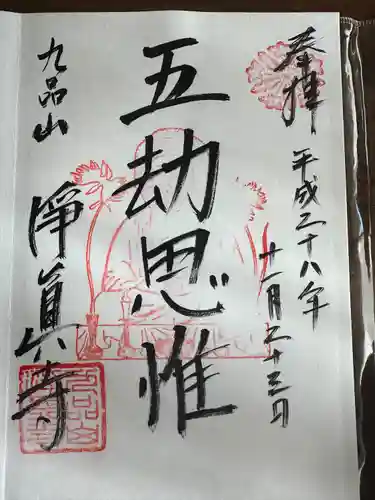 奉拝
平成二十八年
十一月二十三日
五劫思惟
九品山
淨真寺